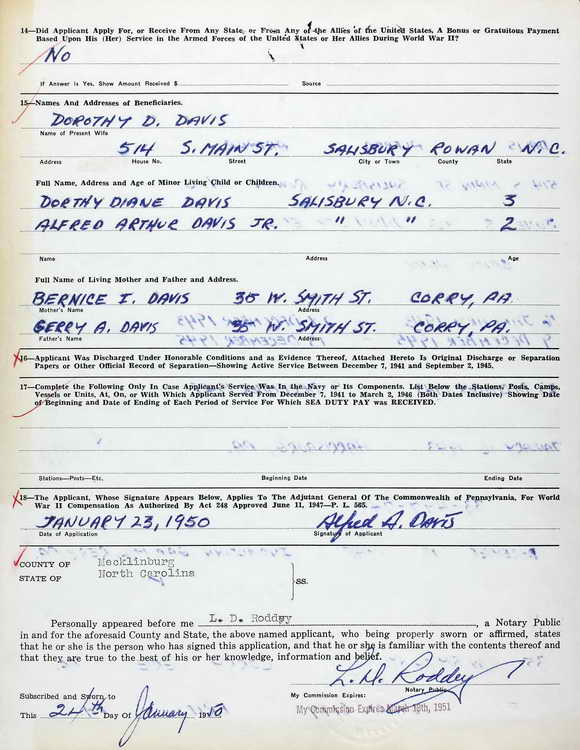 14—Did Applicant Apply For, or Receive From Any State, or From Any of the Allies of the United States, A Bonus or Gratuitous Payment
Based Upon His (Her) Service in the Armed Forces of the United States or Her Allies During World War II?
No
If Answer is Yes, Show Amount Received $ Source
15—Names And Addresses of Beneficiaries.
DOROTHY D. DAVIS
Name of Present Wife
514 S. MAIN ST. SALISBURY ROWAN N.C.
Address House No. Street City or Town County State
Full Name, Address and Age of Minor Living Child or Children.
DORTHY DIANE DAVIS SALISBURY N.C. 3
ALFRED ARTHUR DAVIS JR. " " 2
Name Address Age
Full Name of Living Mother and Father and Address.
BERNICE I. DAVIS 35 W. SMITH ST. CORRY, PA.
Mother's Name Address
GERRY A. DAVIS 35 W. SMITH ST. CORRY, PA.
Father's Name Address
16—Applicant Was Discharged Under Honorable Conditions and as Evidence Thereof, Attached Hereto Is Original Discharge or Separation
Papers or Other Official Record of Separation—Showing Active Service Between December 7, 1941 and September 2, 1945.
17—Complete the Following Only In Case Applicant's Service Was in the Navy or Its Components. List Below the Stations, Posts, Camps,
Vessels or Units, At, On, or With Which Applicant Served From December 7, 1941 to March 2, 1946 (Both Dates Inclusive) Showing Date
of Beginning and Date of Ending of Each Period of Service For Which SEA DUTY PAY was RECEIVED.
Stations—Posts—Etc. Beginning Date Ending Date
18—The Applicant, Whose Signature Appears Below, Applies To The Adjutant General Of The Commonwealth of Pennsylvania, For World
War II Compensation As Authorized By Act 248 Approved June 11, 1947—P. L. 565.
JANUARY 23, 1950 Alfred A. DAVIS
Date of Application Signature of Applicant
COUNTY OF Mecklinburg
STATE OF North Carolina
ss.
Personally appeared before me L. D. Roddey, a Notary Public
in and for the aforesaid County and State, the above named applicant, who being properly sworn or affirmed, states
that he or she is the person who has signed this application, and that he or she is familiar with the contents thereof and
that they are true to the best of his or her knowledge, information and belief.
L. D. Roddey
Notary Public
Subscribed and Sworn to My Commission Expires:
This 24th Day Of January 1950 My Commission Expires March 18th, 1951